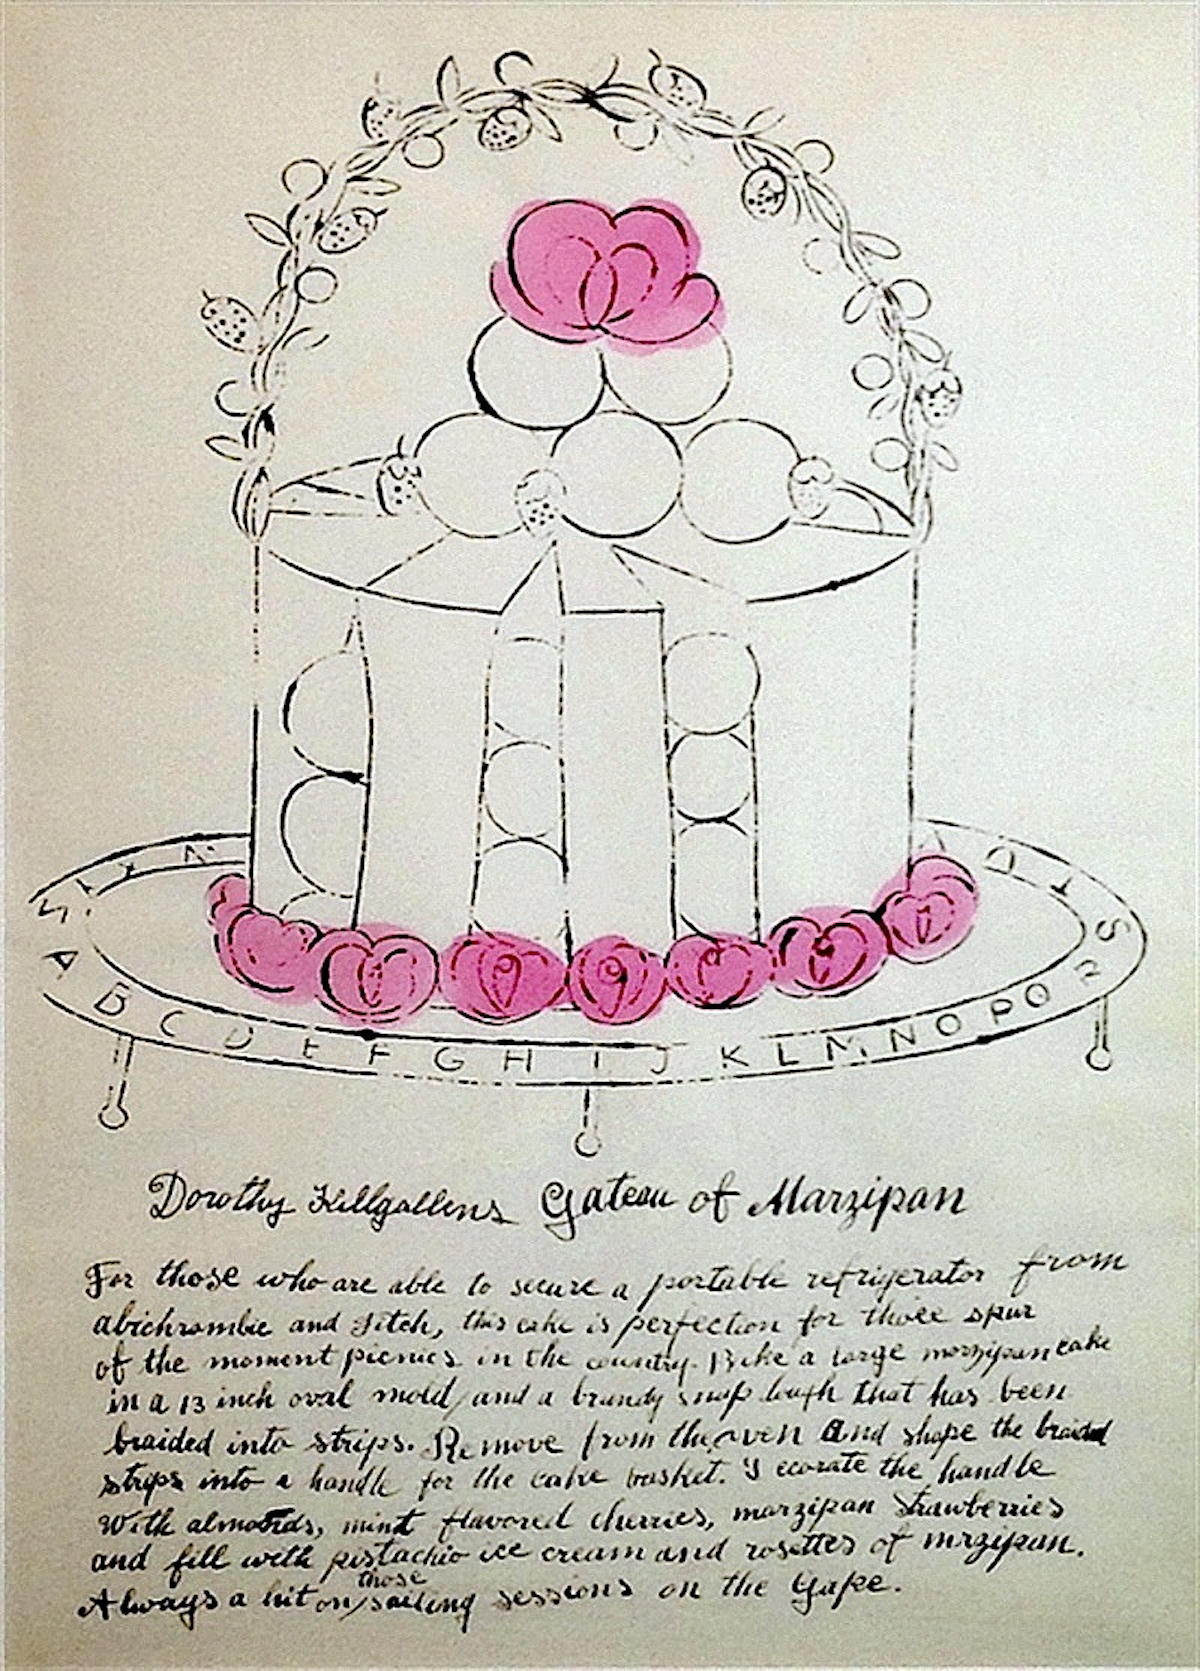 W
X
Y
Z
A B C D E F G H I J K L M N O P Q R S T
Dorothy Killgallens Gateau of Marzipan
For those who are able to secure a portable refrigerator from
abichrombie and Fitch, this cake is perfection for those spur
of the moment picnics in the country. Bake a large marzipan cake
in a 13 inch oval mold, and a brandy snap dough that has been
braided into strips. Remove from the oven and shape the braided
strips into a handle for the cake basket. Decorate the handle
With almonds, mint flavored cherries, marzipan strawberries
and fill with pistachio ice cream and rosettes of mrzipan.
Always a hit on those sailing sessions on the Yape.